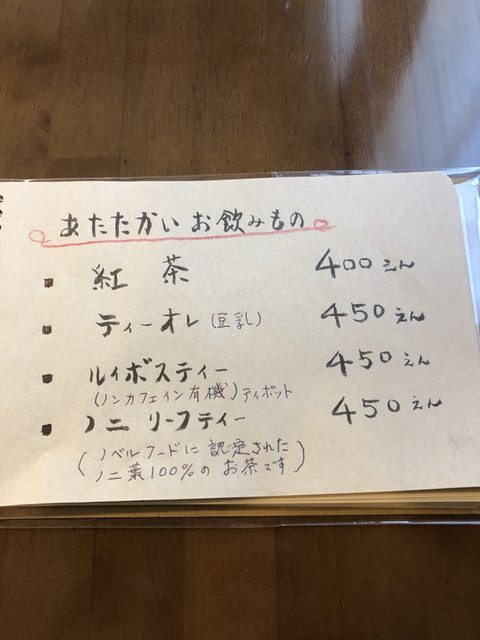 あたたかい お飲みもの
■ 紅 茶 400えん
■ ティーオレ（豆乳） 450えん
■ ルイボスティー 450えん
（ノンカフェイン有機）ティポット
■ ノニ リーフティー 450えん
（ノベルフードに認定された
ノニ葉100%の お茶です）